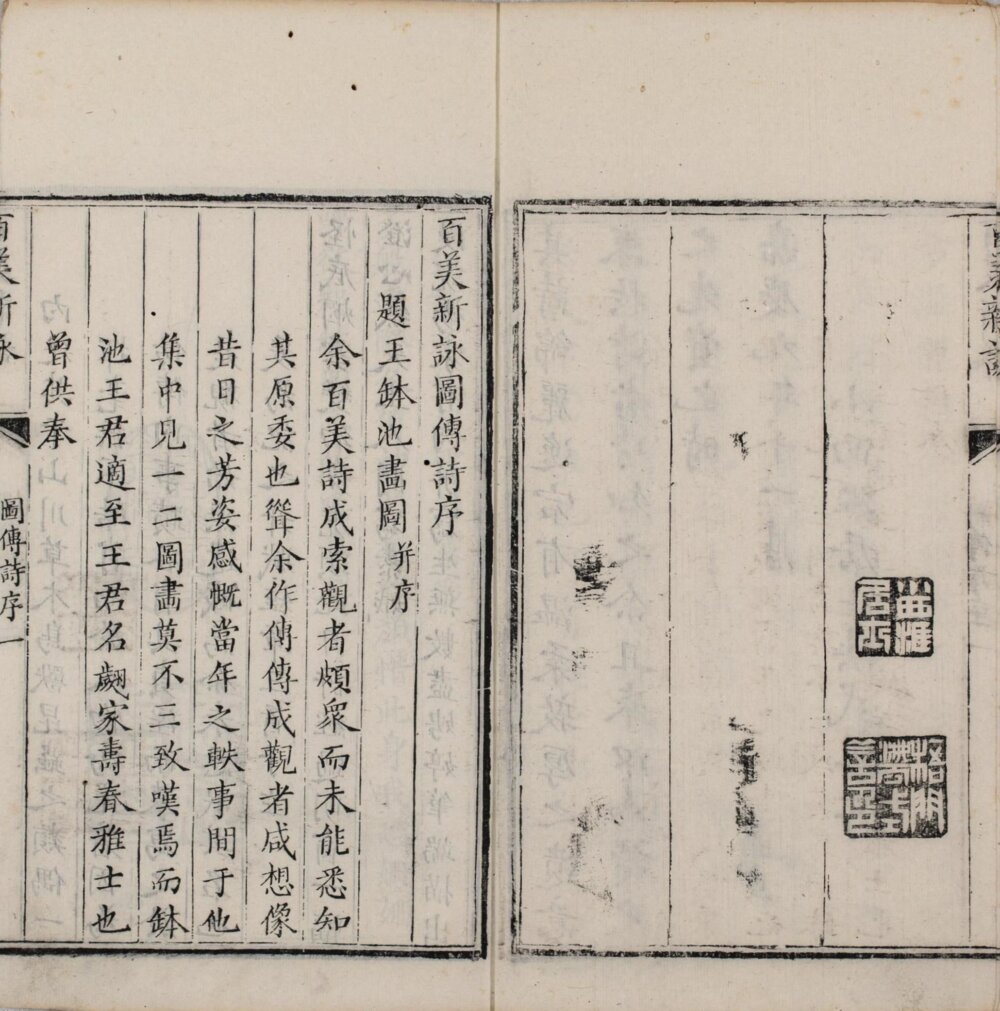 百美新詠
百美新詠圖傳詩序
題王缽池畫圖并序
余百美詩成索觀者頗衆而未能悉知
其原委也聳余作傳傳成觀者咸想像
昔日之芳姿感慨當年之軼事間于他
集中見一二圖畵莫不三致嘆焉而缽
池王君適至王君名翽家壽春雅士也
曾供奉
百美新詠
圖傳詩序
一